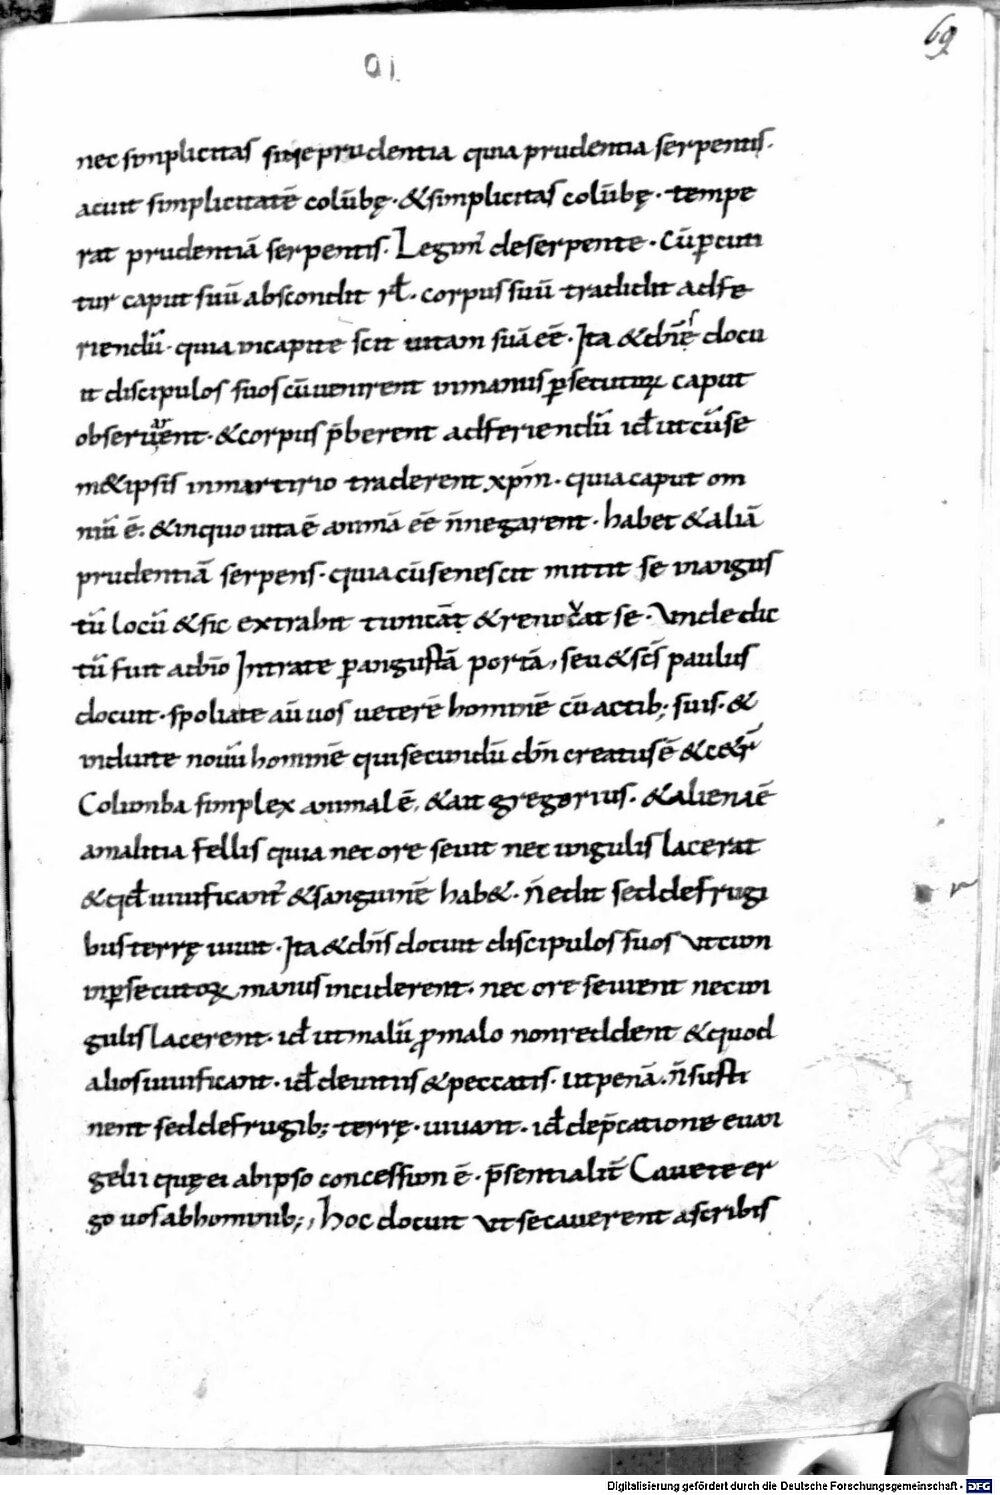 69
nec simplicitas sine prudentia quia prudentia serpentis.
acuit simplicitatē colūbę · & simplicitas colūbę · tempe
rat prudentiā serpentis. Legim̄ de serpente · Cū ꝑcuti
tur caput suū abscondit · corpus suū tradidit ad fe
riendū · quia in capite scit uitam suā eē · Ita & dn̄s docu
it discipulos suos cū uenirent in manus ꝑsecutoꝝ caput
obseruarent · & corpus p̄berent ad feriendū id ut cū se
m&ipsis in martirio traderent xp̄m · quia caput om
niū ē · & in quo uita ē animā eē n̄ negarent · habet & aliā
prudentiā serpens · quia cū senescit mittit se in angus
tū locū & sic extrahit tunicā & renouat se · Vnde dic
tū fuit a dn̄o Intrate ꝑ angustā portā, seu & sc̄s paulus
docuit · spoliate uos ueterē hominē cū actib; suis · &
induite nouū hominē qui secundū dn̄m creatus ē & cet̄
Columba simplex animal ē, & ait gregorius · & aliena ē
a malitia fellis quia nec ore seuit nec ungulis lacerat
& qd̄ uiuificant̄ & sanguinē hab& · n̄ edit sed de frugi
bus terrę uiuit · Ita & dn̄s docuit discipulos suos ut cum
in ꝑsecutoꝝ manus inciderent · nec ore seuient nec un
gulis lacerent · id ut malū ꝓ malo non reddent & quod
alios uiuificant · id de uitiis & peccatis · ut penā · n̄ susti
nent sed de frugib; terrę · uiuant · id de p̄catione euan
gelii quę ei ab ipso concessum ē · p̄sentialit̄ Cauete er
go uos ab hominib;, hoc docuit ut se cauerent a scribis
Digitalisierung gefördert durch die Deutsche Forschungsgemeinschaft - DFG